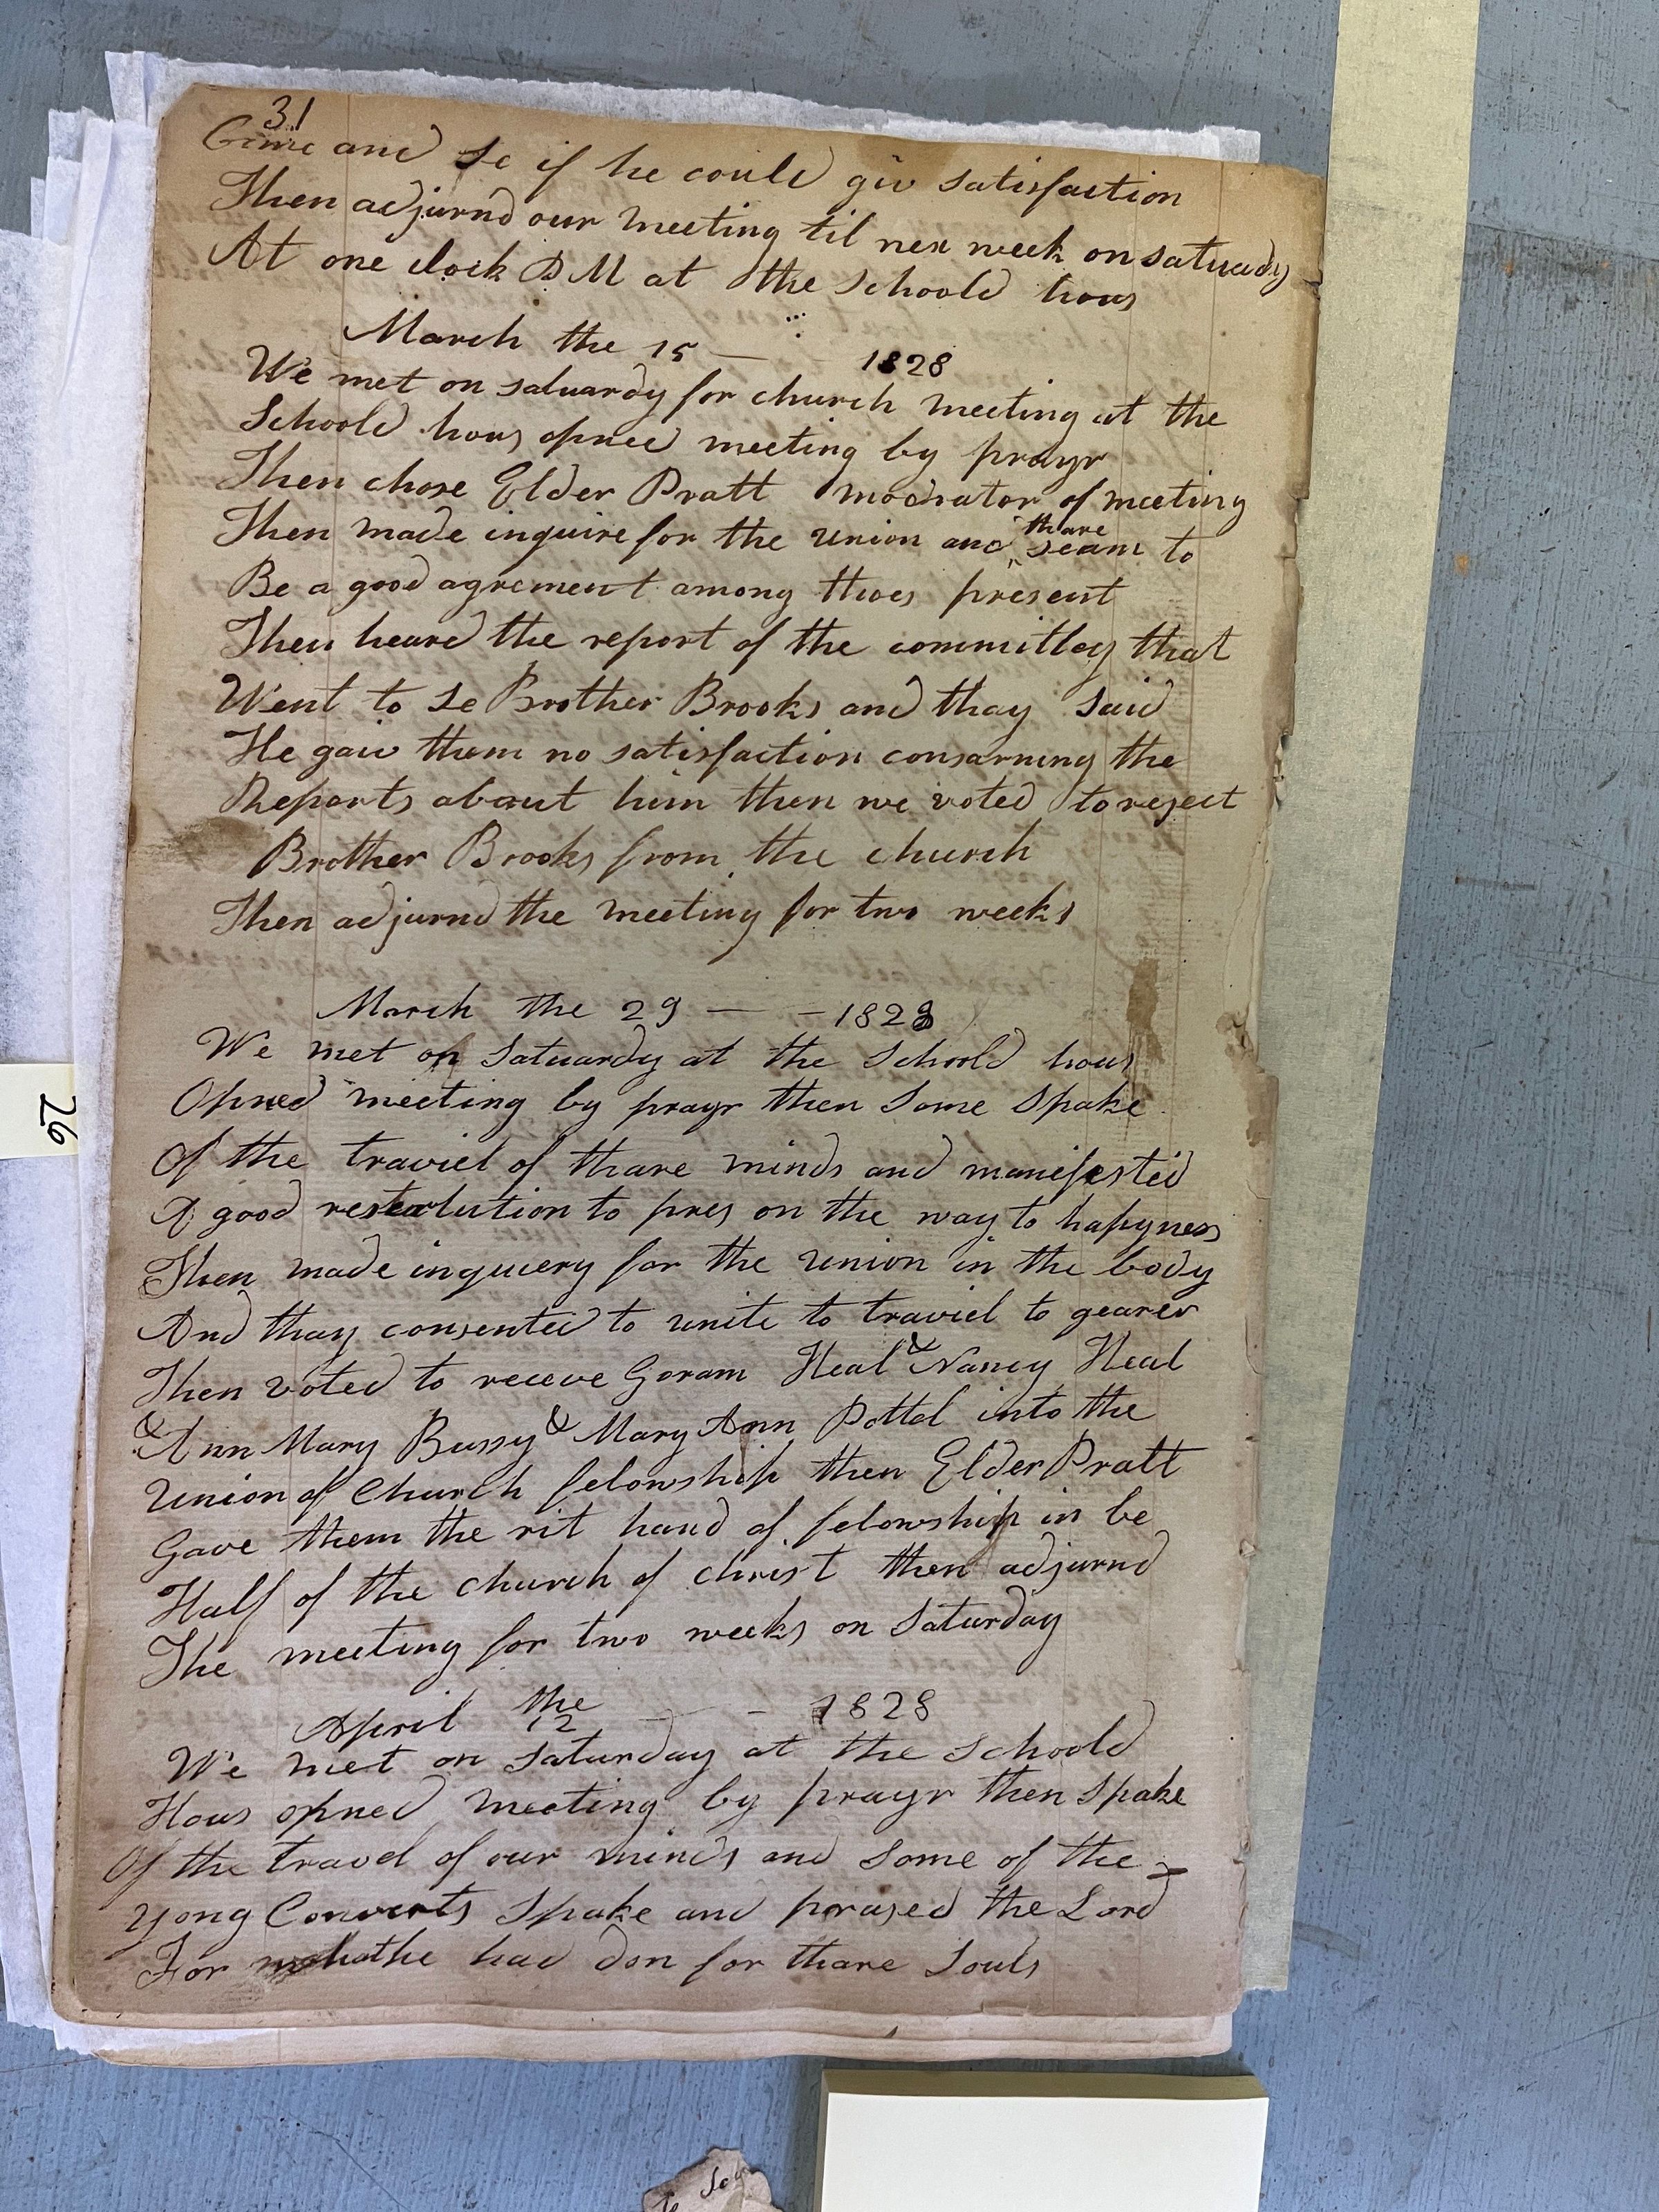 31
Crime and se if he could giv satisfaction
Then adjurnd our meeting til nex week on satuardy
At one clock P M at the schoold hous
March the 15 — 1828
We met on satuardy for church meeting at the
Schoold hous opned meeting by prayr
Then chose Elder Pratt modrator of meeting
Then made inquire for the union and thare seam to
Be a good agrement among thoes present
Then heard the report of the committey that
Went to se Brother Brooks and thay said
He gaiv them no satisfaction consarning the
Reports about him then we voted to reject
Brother Brooks from the church
Then adjurnd the meeting for two weeks
March the 29 — – 1828
We met on Satuardy at the schoold hous
Opned meeting by prayr then some spake
Of the traviel of thare minds and manifested
A good resolution to pres on the way to hapyness
Then made inquiery for the union in the body
And thay consented to unite to traviel to gearer
Then voted to receve Goram Heal & Nancy Heal
& Ann Mary Bussy & Mary Ann Pottel into the
Union of Church felowship then Elder Pratt
Gave them the rit hand of felowship in be
Half of the church of christ then adjurnd
The meeting for two weeks on Saturday
April the 12 — – 1828
We met on saturday at the schoold
Hous opned meeting by prayr then spake
Of the travel of our minds and some of the
Yong Converts spake and prased the Lord
For whathe had don for thare souls
26